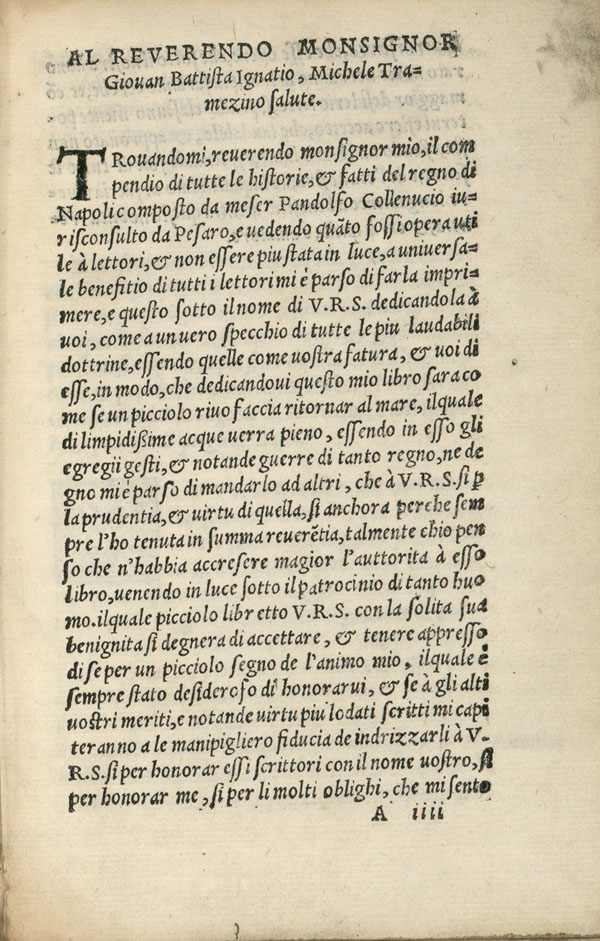 AL REVERENDO MONSIGNOR
Giouan Battista Ignatio, Michele Tra=
mezino salute.
TRouandomi, reuerendo monsignor mio, il com
pendio di tutte le historie, & fatti del regno di
Napoli composto da meser Pandolfo Collenucio iu=
risconsulto da Pesaro, e uedendo quāto fossi opera uti
le à lettori, & non essere piu stata in luce, a uniuersa=
le benefitio di tutti i lettori mi è parso di farla impri=
mere, e questo sotto il nome di V.R.S. dedicandola à
uoi, come a un uero specchio di tutte le piu laudabili
dottrine, essendo quelle come uostra fatura, & uoi di
esse, in modo, che dedicandoui questo mio libro sara co
me se un picciolo riuo faccia ritornar al mare, ilquale
di limpidißime acque uerra pieno, essendo in esso gli
egregii gesti, & notande guerre di tanto regno, ne de
gno mi è parso di mandarlo ad altri, che à V.R.S. si ꝑ
la prudentia, & uirtu di quella, si anchora perche sem
pre l'ho tenuta in summa reuerētia, talmente chio pen
so che n'habbia accresere magior l'auttorita à esso
libro, uenendo in luce sotto il patrocinio di tanto huo
mo. ilquale picciolo libretto V.R.S. con la solita sua
benignita si degnera di accettare, & tenere appresso
di se per un picciolo segno de l'animo mio, ilquale è
sempre stato desideroso di honorarui, & se à gli alti
uostri meriti, e notande uirtu piu lodati scritti mi capi
teranno a le mani pigliero fiducia de indrizzarli à V.
R.S. si per honorar essi scrittori con il nome uostro, si
per honorar me, si per li molti oblighi, che mi sento
A iiii